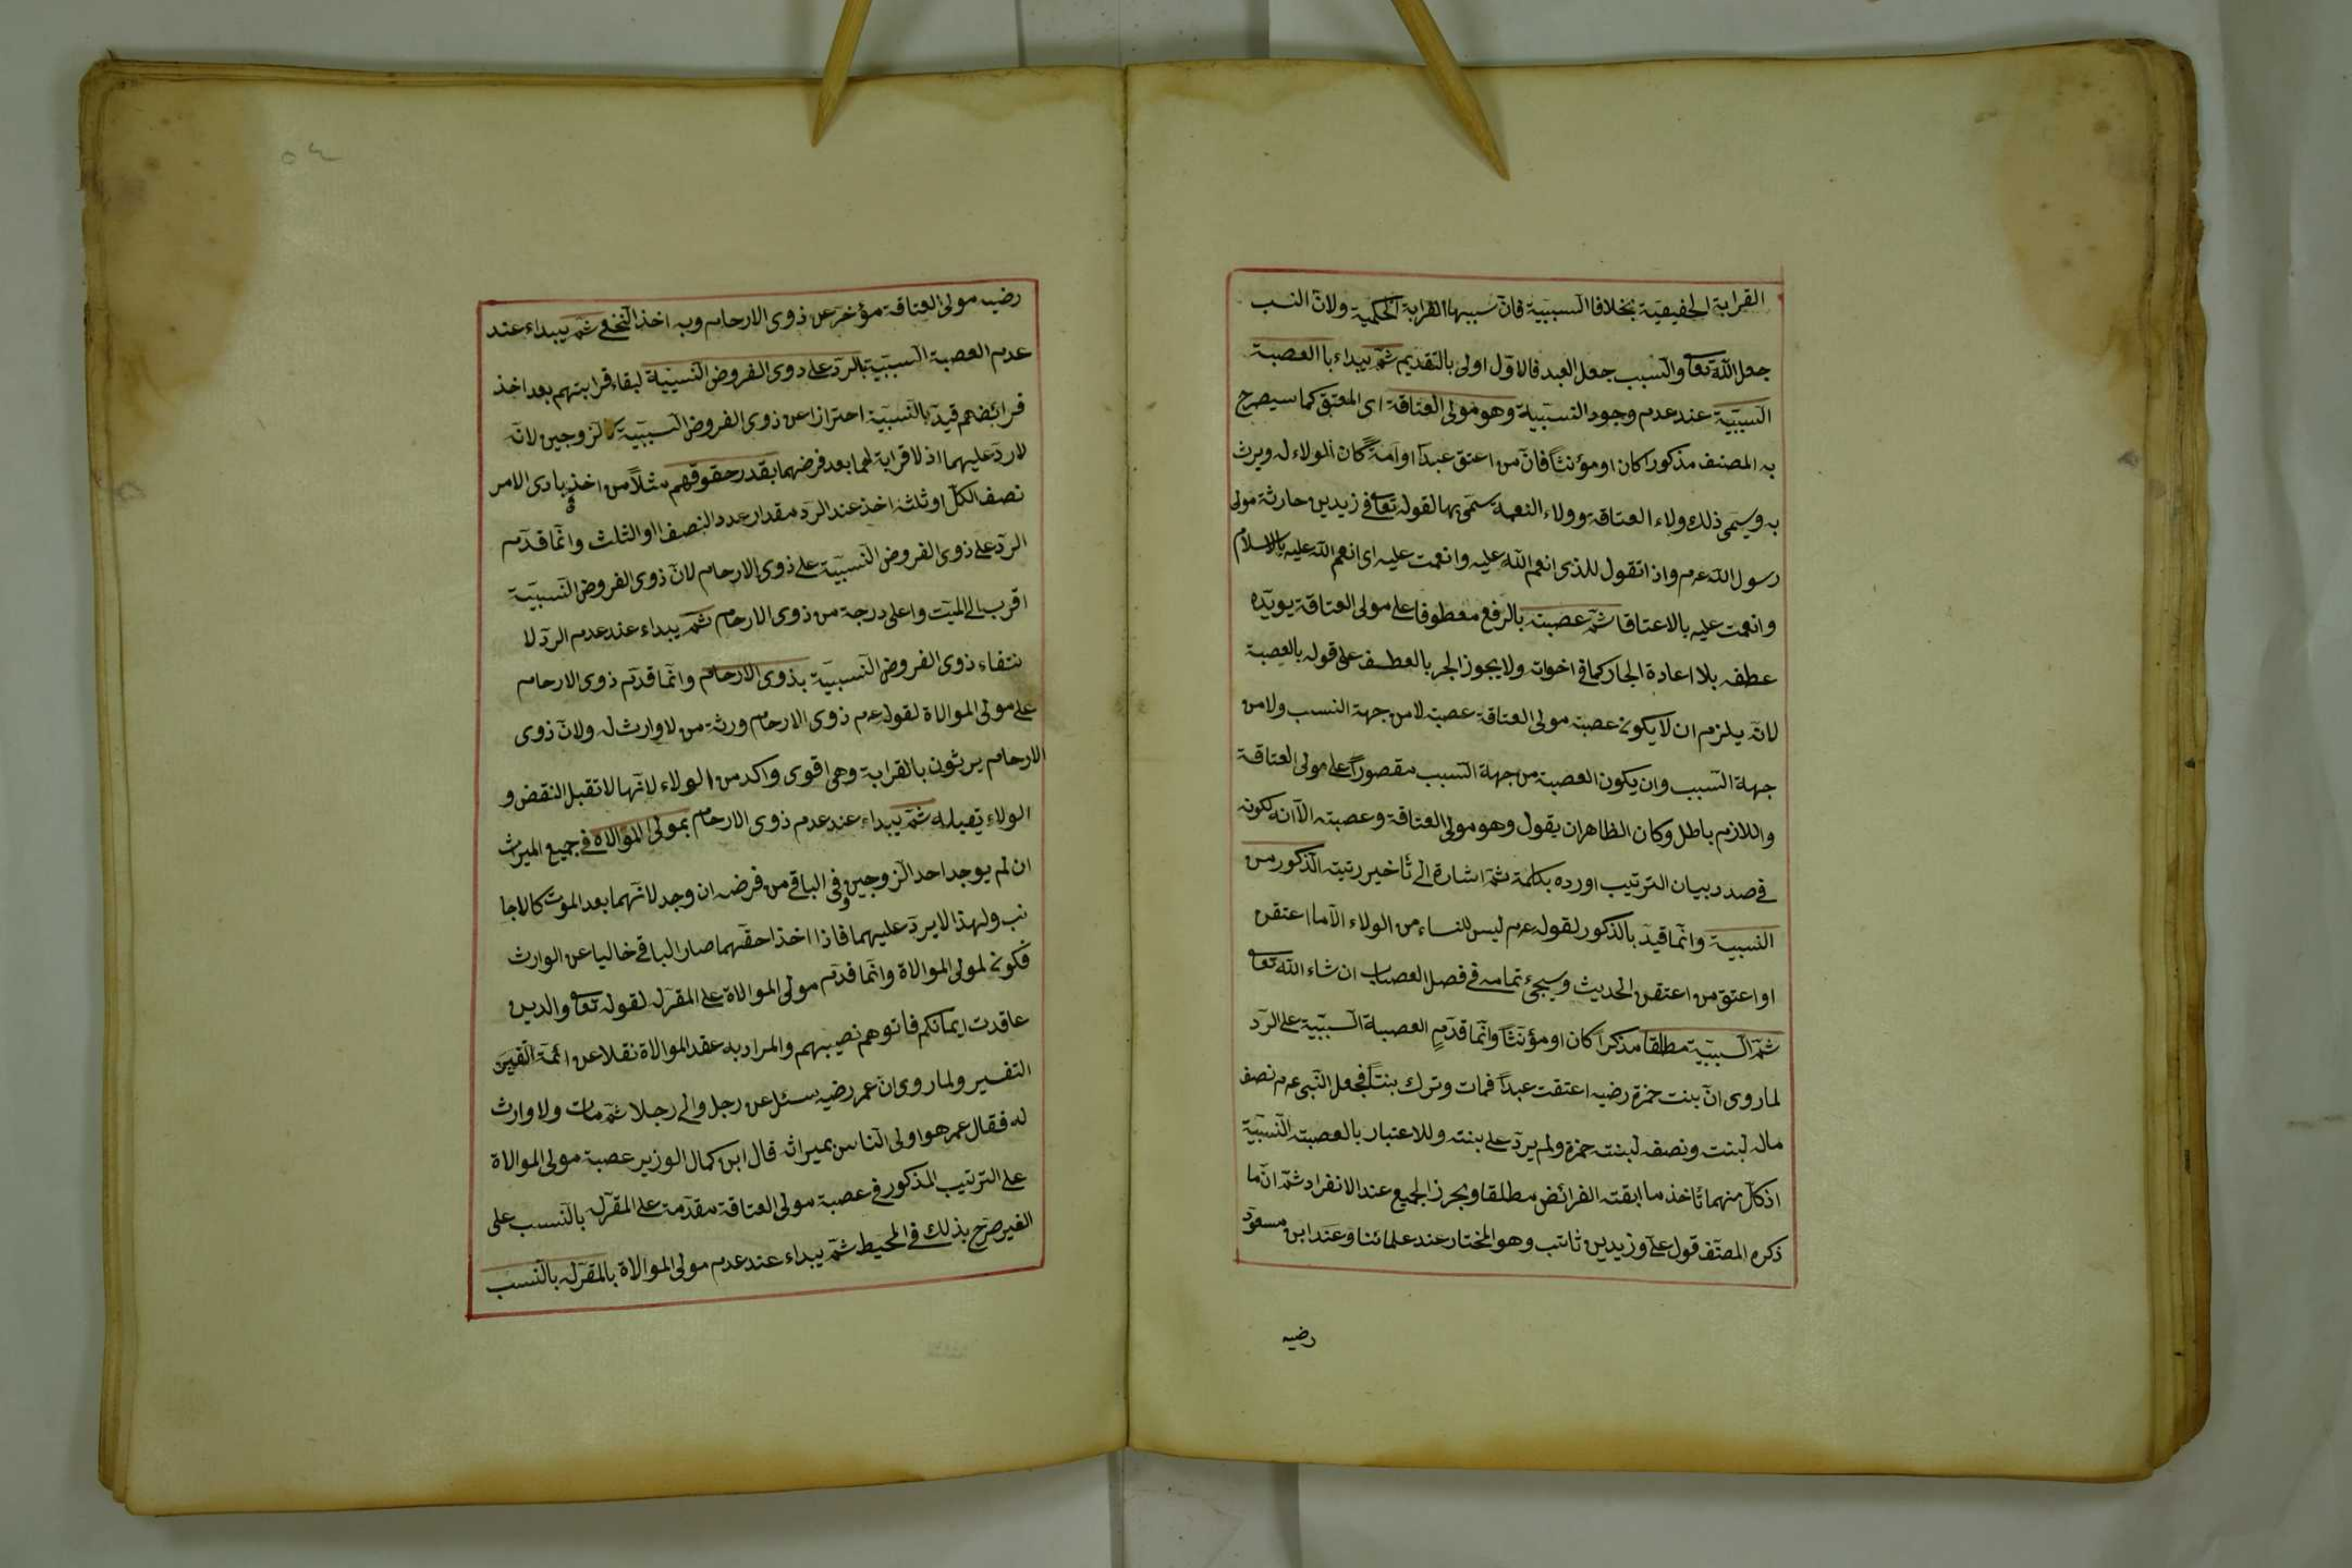 القرابة الحقيقية بخلاف السببية فانّ سببها القرابة الحكمية ولانّ النسب
جعل اللّه تعا والسّبب جعل العبد فالاوّل اولى بالتقديم ثمّ يبداء باالعصبة
السّببيّة عند عدم وجود النسبيية وهو مولى العتاقة اى المعتق كما سيصرح
به المصنف مذكورا كان او مؤنثا فانّ من اعتق عبدا او امةً كان الولاء له ويرث
به ويسمى ذلك ولاء العتاقة وولاء النعمة سمّى بها لقوله تعا فى زيد بن حارثة مولى
رسول اللّه عم واذ اتقول للذى انعم اللّه عليه وانعمت عليه اى انعم اللّه عليه بالاسلام
وانعمت عليه بالاعتاق ثمّ عصبته بالرفع معطوفا على مولى العتاقة يويّده
عطفه بلا اعادة الجار كما فى اخواته ولا يجوز الجر بالعطف على قوله بالعصبة
لانّه يلزم ان لا يكون عصبة مولى العتاقة عصبة لا من جهة النسب ولا من
جهة السّبب وان يكون العصبة من جهة السّبب مقصوراً على مولى العتاقة
واللازم باطل وكان الظاهر ان يقول وهو مولى العتاقة وعصبته الّا انه لكونه
فى صدد بيان الترتيب اورده بكلمة ثمّ اشارة الى تأخير رتبته الذّكور من
النسبية وانّما قيدّ بالذكور لقوله عم ليس للنساء من الولاء الّا ما اعتقن
او اعتق من اعتقن الحديث وسيجئ تمامه فى فصل العصبات ان شاء اللّه تعا
ثمّ السّببيّة مطلقا مذكراً كان او مؤنّثاً وانّما قدّم العصبة السّببيّة على الردّ
لما روى انّ بنت حمزة رضيه اعتقت عبداً فمات وترك بنتاً فجعل النّبى عم نصف
ماله لبنت ونصفه لبنت حمزة ولم يردّ على بنته وللاعتبار بالعصبة النّسبيّة
اذ كلّ منهما تأخذ ما ابقته الفرائض مطلقا ويحرز الجميع عند الانفراد ثمّ انّ ما
ذكره المصنّف قول علىّ وزيد بن ثابت وهو المختار عند علمائنا وعند ابن مسعود
رضيه
٥٤
رضيه مولى العتاقة مؤخر عن ذوى الارحام وبه اخذ النّخعى ثمّ يبداء عند
عدم العصبة السّببيّة بالردّ على ذوى الفروض النّسبيّة لبقاء قرابتهم بعد اخذ
فرائضهم قيدّ بالنّسبيّة احترازا عن ذوى الفروض السّببيّة كالزوجين لانّه
لا ردّ عليهما اذ لا قرابة لهما بعد فرضهما بقدر حقوقهم مثلاً من اخذ بادى الامر
نصف الكلّ او ثلثه اخذ عند الردّ مقدار عدد النصف او الثلث وانّما قدّم
الردّ على ذوى الفروض النّسبيّة على ذوى الارحام لانّ ذوى الفروض النّسبيّة
اقرب الى الميّت واعلى درجة من ذوى الارحام ثمّ يبداء عند عدم الردّ لا
نتفاء ذوى الفروض النّسبيّة بذوى الارحام وانّما قدّم ذوى الارحام
على مولى الموالاة لقوله عم ذوى الارحام ورثة من لا وارث له ولانّ ذوى
الارحام يرثون بالقرابة وهى اقوى واكد من الولاء لانّها لا تقبل النقض و
الولاء تقبله ثمّ يبداء عند عدم ذوى الارحام بمولى الموالاة فى جميع الميراث
ان لم يوجد احد الزّوجين وفى الباقى من فرضه ان وجد لانّهما بعد الموت كالاجا
نب ولهذا لا يردّ عليهما فاذا اخذا حقّهما صار الباقى خاليا عن الوارث
فكون لمولى الموالاة وانّما قدّم مولى الموالاة على المقرّ له لقوله تعا والذين
عاقدت ايمانكم فاتوهم نصيبهم والمراد به عقد الموالاة نقلا عن ائمّة
التفسير ولما روى انّ عمر رضيه سئل عن رجل والى رجلا ثمّ مات ولا وارث
له فقال عمر هو اولى النّاس بميراثه قال ابن كمال الوزير عصبة مولى الموالاة
على الترتيب المذكور فى عصبة مولى العتاقة مقدّمة على المقرّ له بالنّسب على
الغير صرّح بذلك فى المحيط ثمّ يبداء عند عدم مولى الموالاة بالمقرّ له بالنّسب